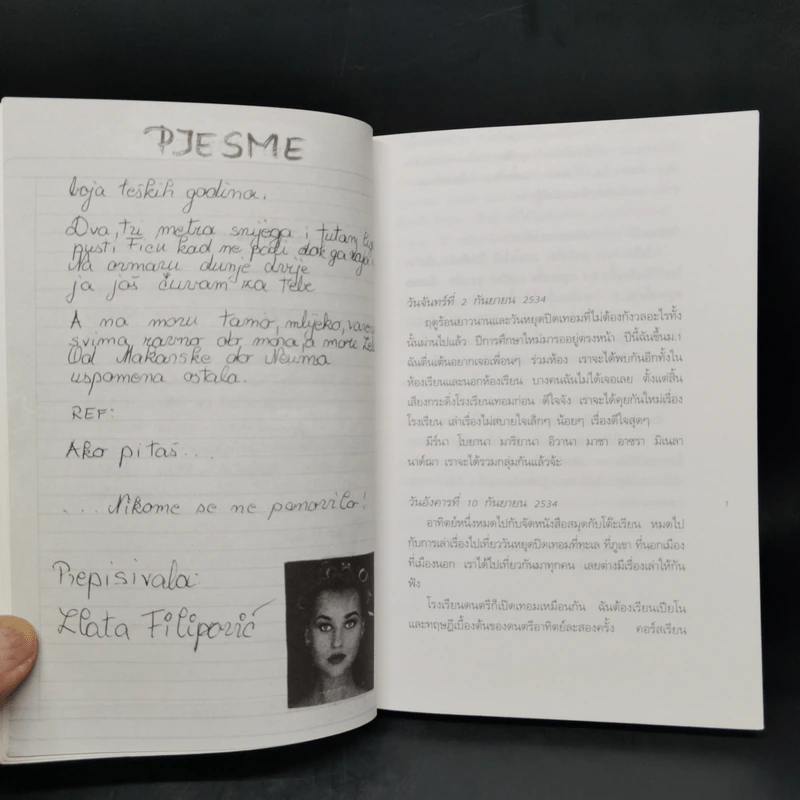 PJESME
boja teških godina.
Dva, tri metra snijega i tutanj
pusti Ficu kad ne pali dok ga
Na ormaru dunje dvije
ja još čuvam za Tebe
A na moru tamo, mlijeko,
svima ravno do mora, a moru
Od Makarske do Neuma
uspomena ostala.
REF:
Ako pitaš...
...Nikome se ne ponovilo!
Prepisivala:
Zlata Filipović
วันจันทร์ที่ 2 กันยายน 2534
ฤดูร้อนยาวนานและวันหยุดปิดเทอมที่ไม่ต้องกังวลอะไรทั้ง
นั้นผ่านไปแล้ว ปีการศึกษาใหม่มารออยู่ตรงหน้า ปีนี้ฉันขึ้นม.1
ฉันตื่นเต้นอยากเจอเพื่อนๆ ร่วมห้อง เราจะได้พบกันอีกทั้งใน
ห้องเรียนและนอกห้องเรียน บางคนฉันไม่ได้เจอเลย ตั้งแต่สิ้น
เสียงกระดิ่งโรงเรียนเทอมก่อน ดีใจจัง เราจะได้คุยกันใหม่เรื่อง
โรงเรียน เล่าเรื่องไม่สบายใจเล็กๆ น้อยๆ เรื่องดีใจสุดๆ
มีร์นา โบยานา มาริยานา อิวานา มาชา อาซรา มิเนลา
นาด์ฌา เราจะได้รวมกลุ่มกันแล้วจ้ะ
วันอังคารที่ 10 กันยายน 2534
1
อาทิตย์หนึ่งหมดไปกับจัดหนังสือสมุดกับโต๊ะเรียน หมดไป
กับการเล่าเรื่องไปเที่ยววันหยุดปิดเทอมที่ทะเล ที่ภูเขา ที่นอกเมือง
ที่เมืองนอก เราได้ไปเที่ยวกันมาทุกคน เลยต่างมีเรื่องเล่าให้กัน
ฟัง
โรงเรียนดนตรีก็เปิดเทอมเหมือนกัน ฉันต้องเรียนเปียโน
และทฤษฎีเบื้องต้นของดนตรีอาทิตย์ละสองครั้ง คอร์สเรียน